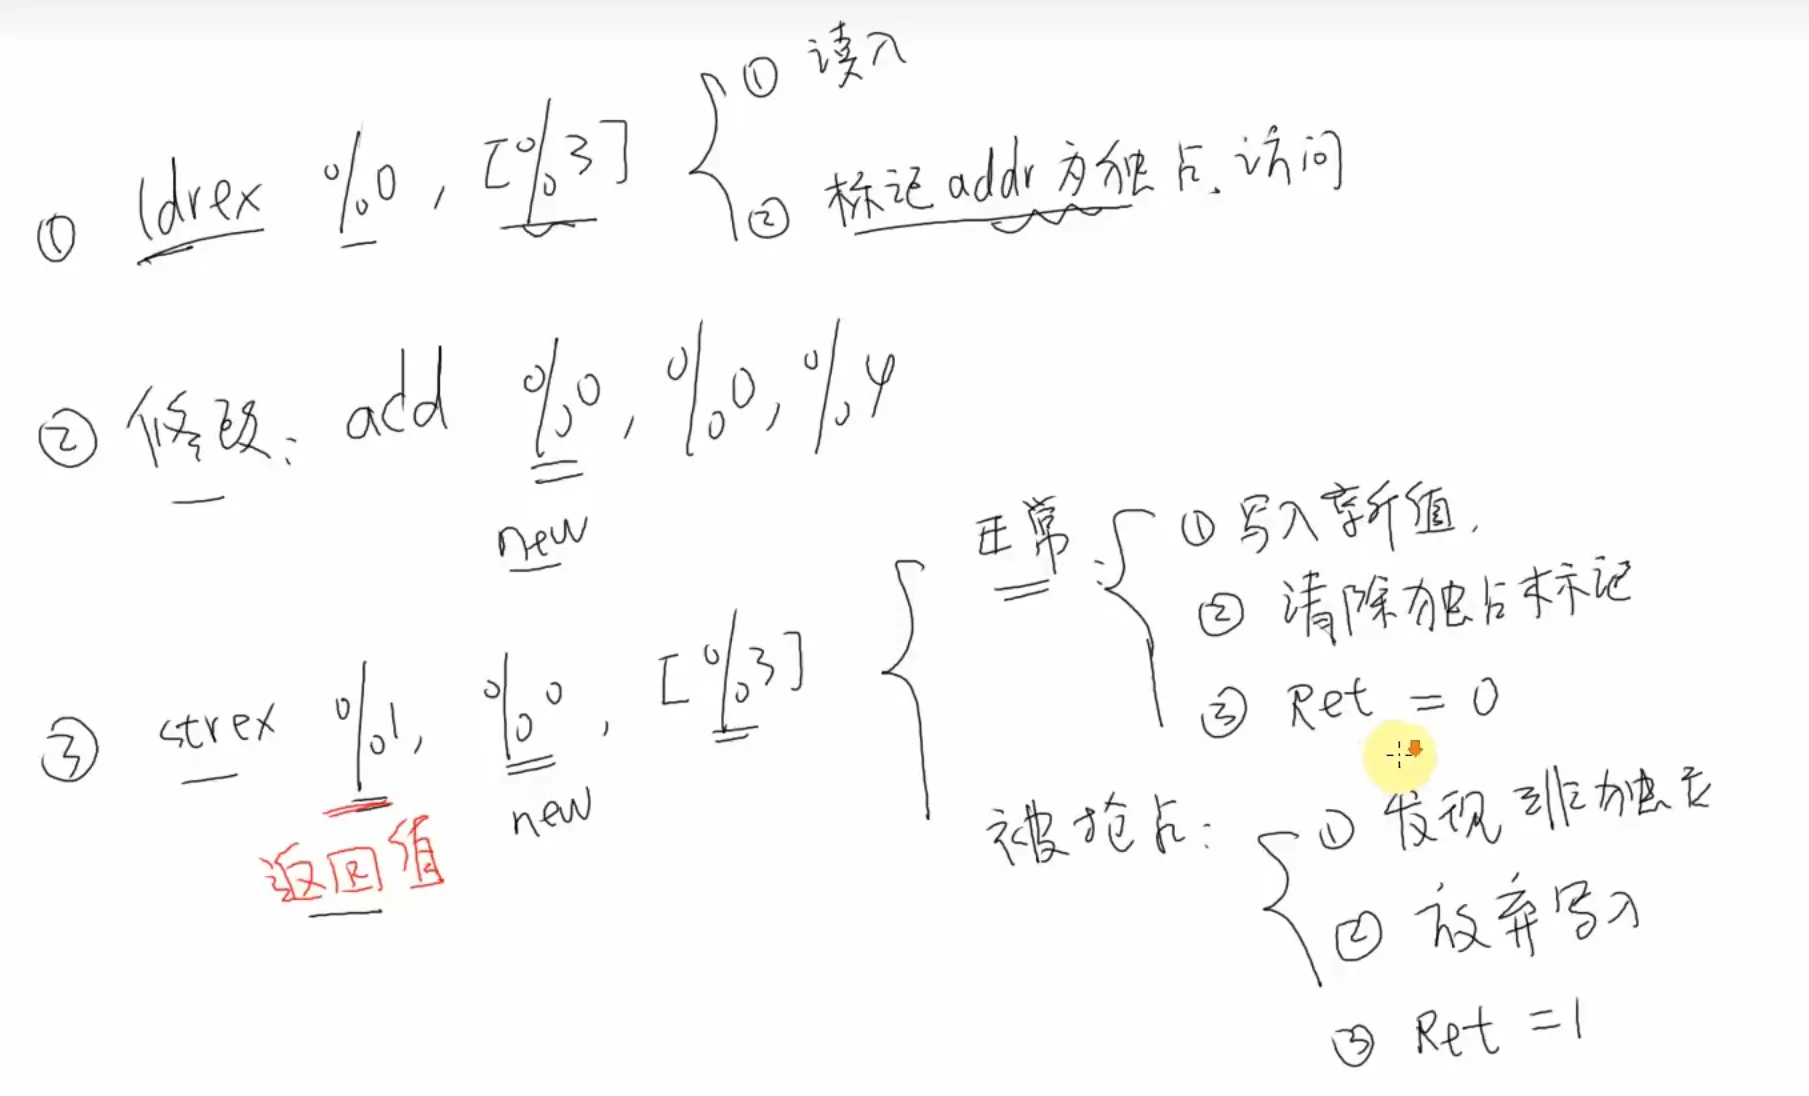 ① ldrex %0, [%3]
① 读入
② 标记addr为独占访问
② 修改: add %0, %0, %4
new
③ strex %1, %0, [%3]
返回值
new
正常:
① 写入新值.
② 清除独占标记
③ Ret = 0
被抢占:
① 发现非独占
② 放弃写入
③ Ret = 1